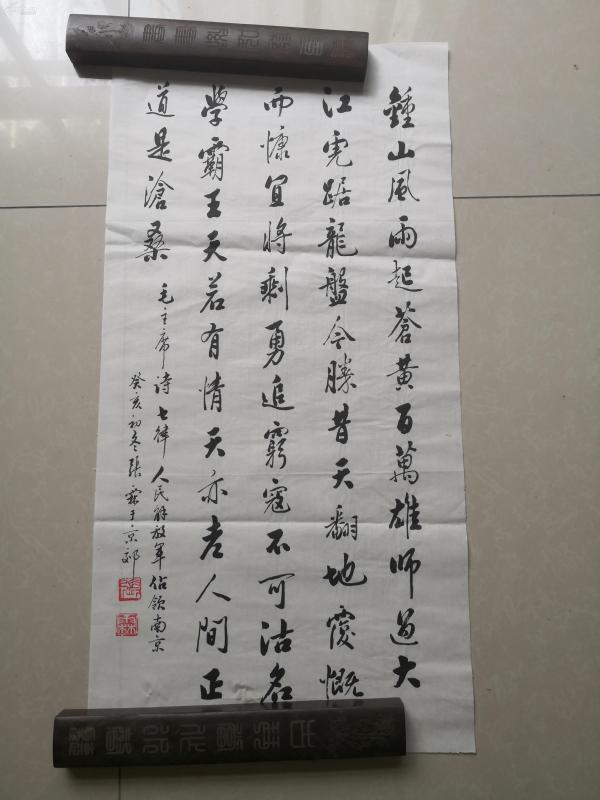 鍾山風雨起蒼黄百萬雄师過大
江虎踞龍盤今勝昔天翻地覆慨
而慷宜將剩勇追窮寇不可沽名
學霸王天若有情天亦老人間正
道是滄桑
毛主席詩七律人民解放軍佔領南京
癸亥初冬張霖于京郊